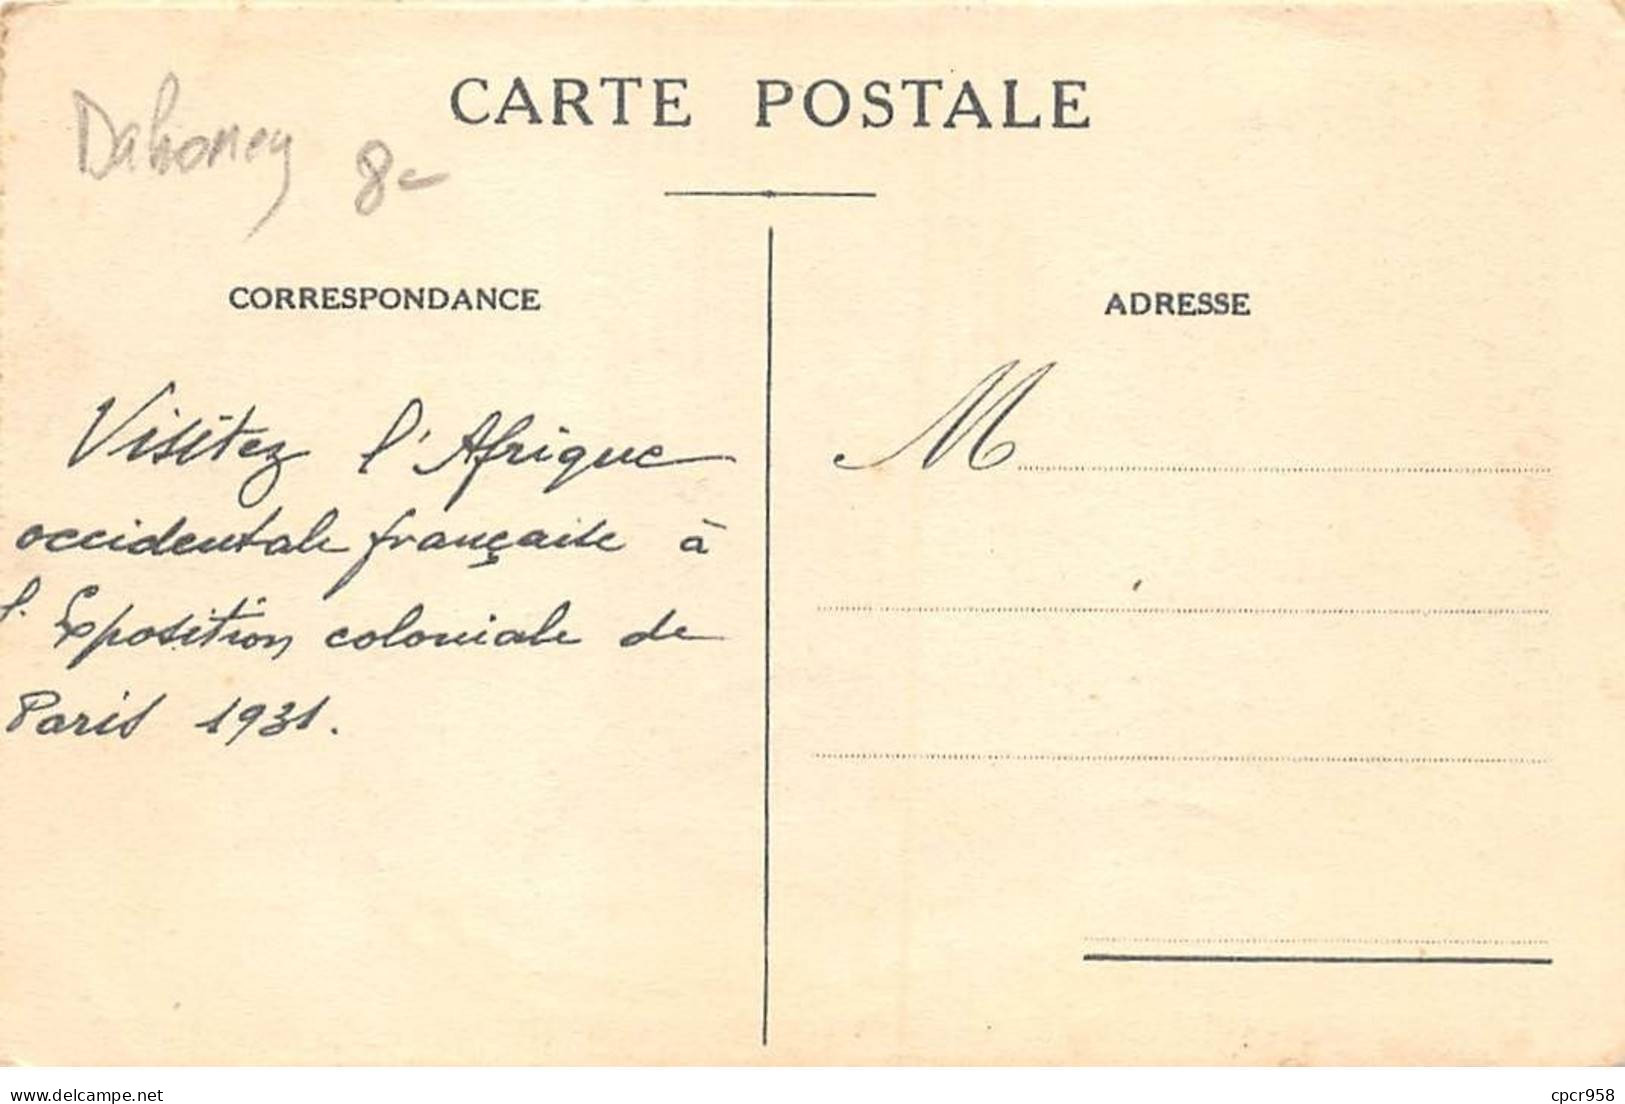 CARTE POSTALE
Dahomey 8-
CORRESPONDANCE
Visitez l'Afrique
occidentale française à
l'Exposition coloniale de
Paris 1931.
ADRESSE
M
delcampe.net
cpcr958